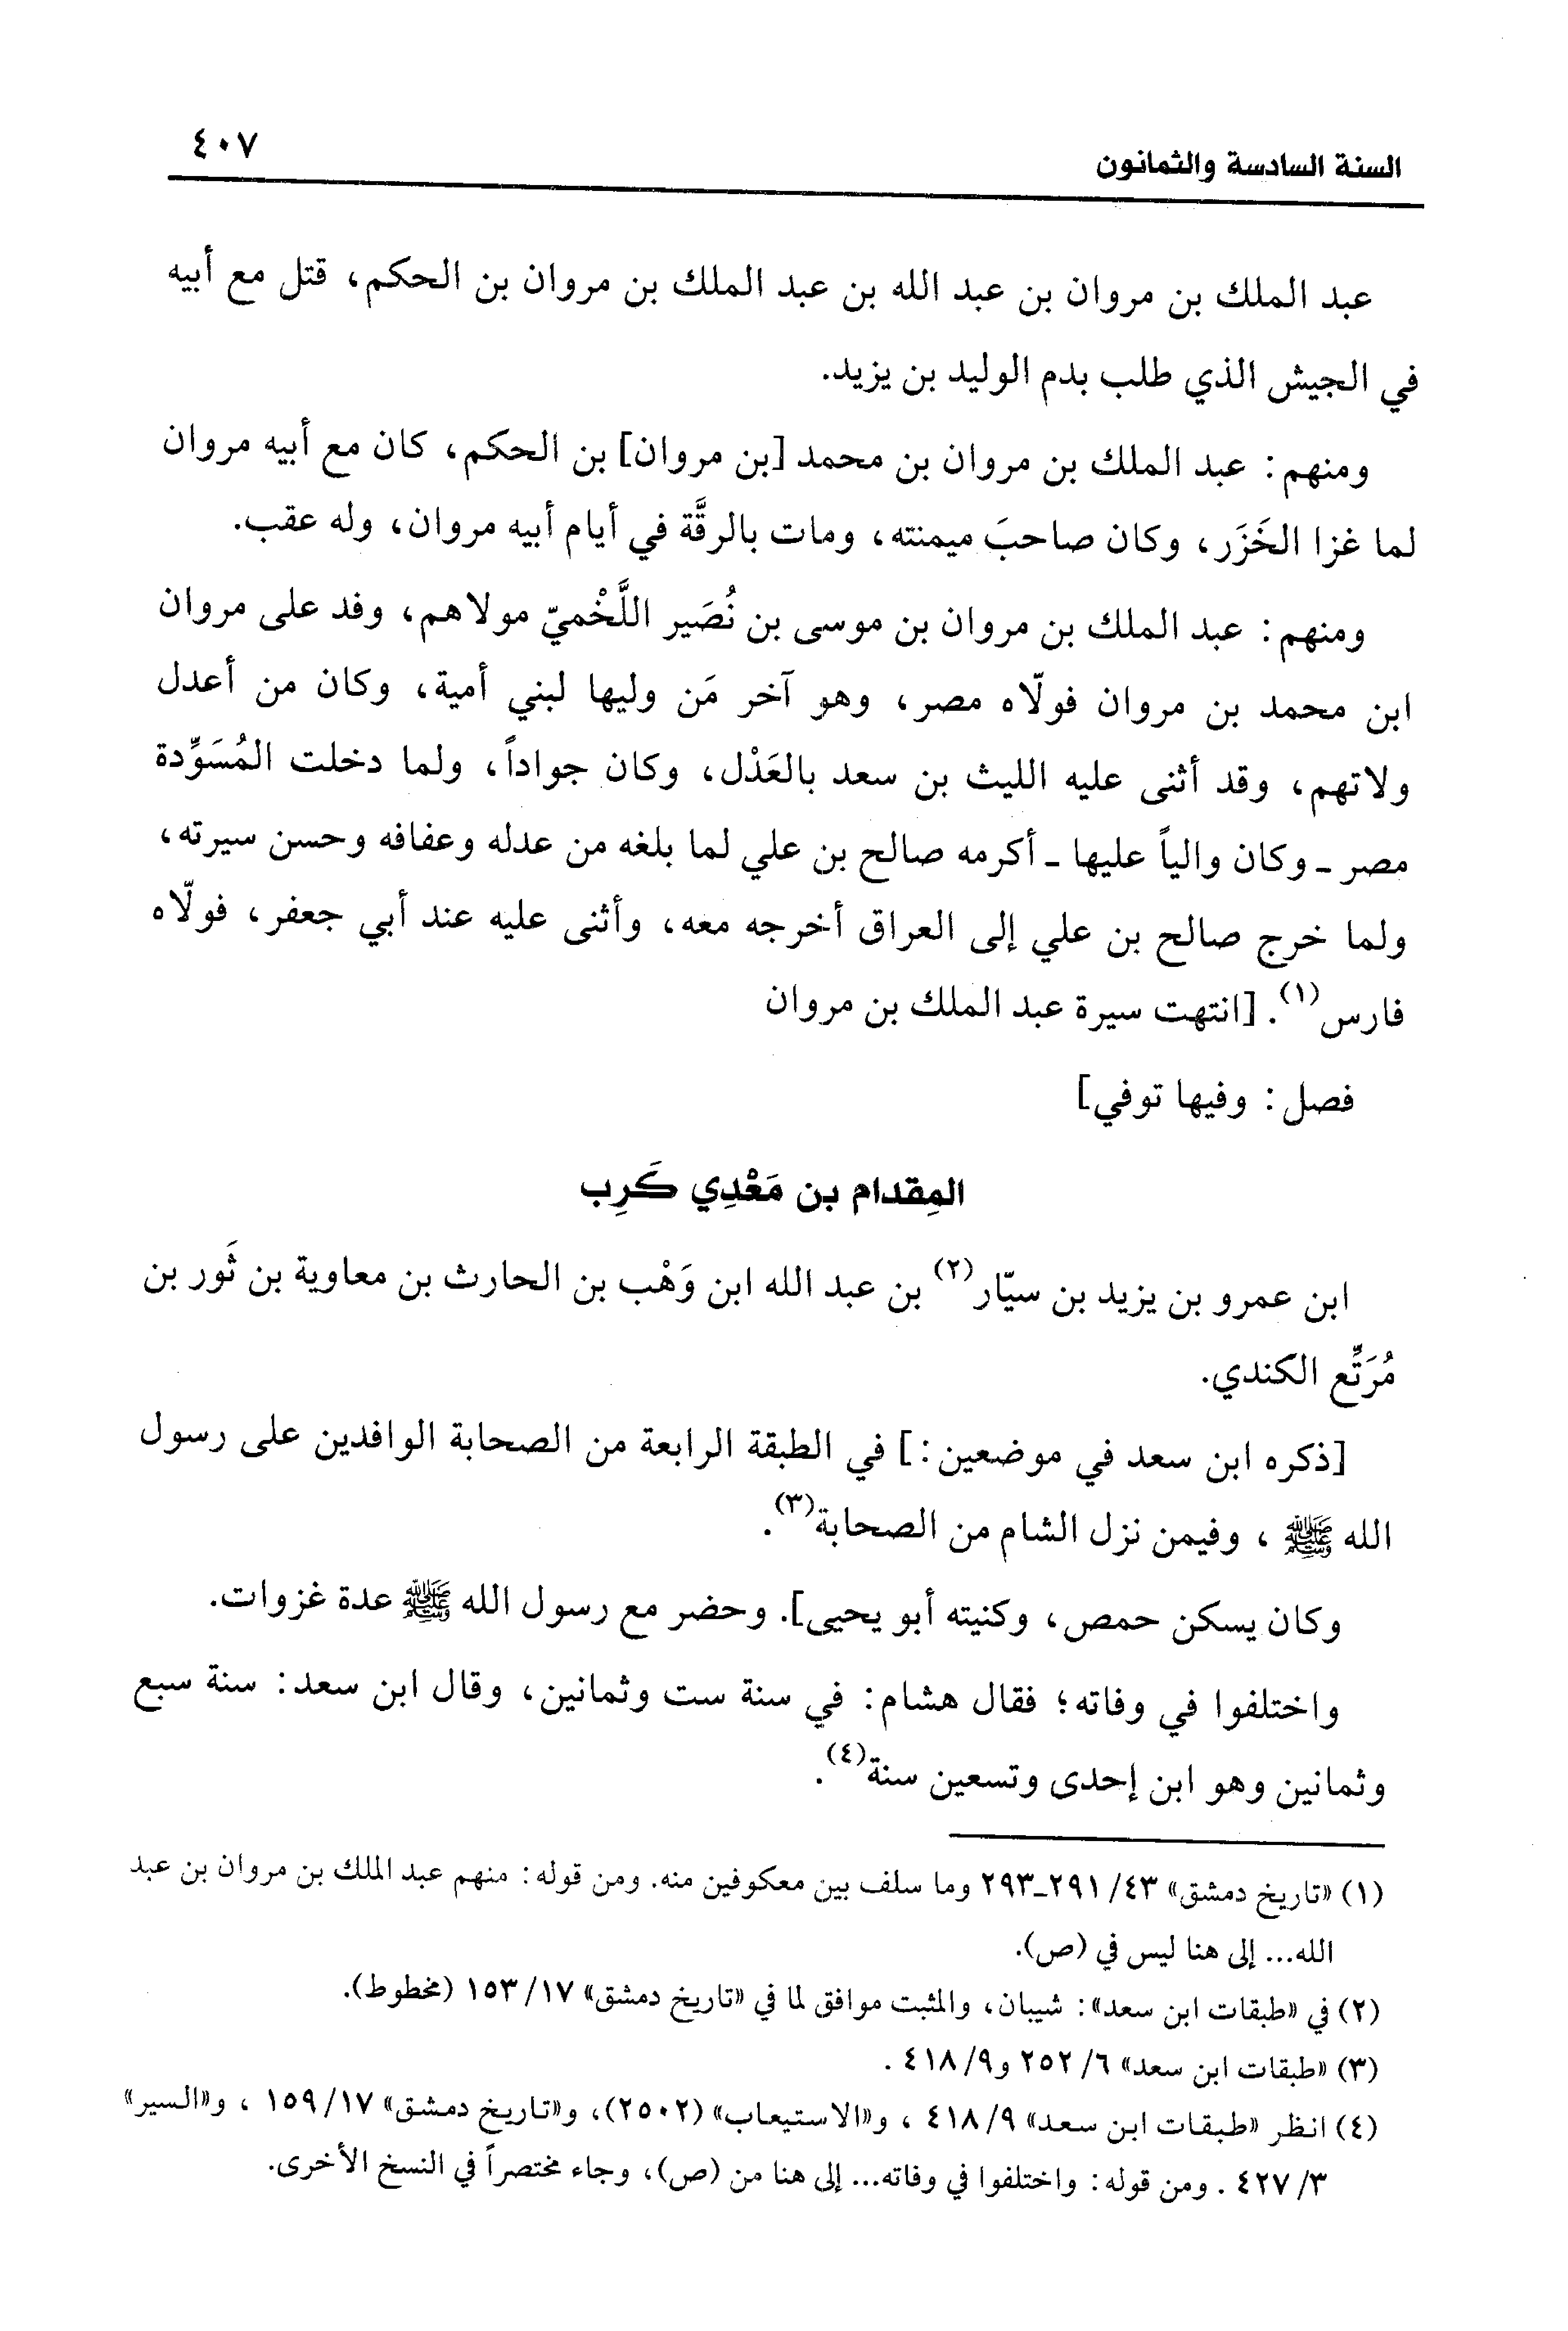 السنة السادسة والثمانون
٤٠٧
عبد الملك بن مروان بن عبد الله بن عبد الملك بن مروان بن الحكم، قتل مع أبيه
في الجيش الذي طلب بدم الوليد بن يزيد.
ومنهم: عبد الملك بن مروان بن محمد [بن مروان] بن الحكم، كان مع أبيه مروان
لما غزا الخَزَر، وكان صاحبَ ميمنته، ومات بالرقَّة في أيام أبيه مروان، وله عقب.
ومنهم: عبد الملك بن مروان بن موسى بن نُصَير اللَّخْميّ مولاهم، وفد على مروان
ابن محمد بن مروان فولّاه مصر، وهو آخر مَن وليها لبني أمية، وكان من أعدل
ولاتهم، وقد أثنى عليه الليث بن سعد بالعَدْل، وكان جواداً، ولما دخلت المُسَوِّدة
مصر ـ وكان والياً عليها ـ أكرمه صالح بن علي لما بلغه من عدله وعفافه وحسن سيرته،
ولما خرج صالح بن علي إلى العراق أخرجه معه، وأثنى عليه عند أبي جعفر، فولّاه
فارس(١). [انتهت سيرة عبد الملك بن مروان
فصل: وفيها توفي]
المِقدام بن مَعْدِي كَرِب
ابن عمرو بن يزيد بن سيّار(٢) بن عبد الله ابن وَهْب بن الحارث بن معاوية بن ثَور بن
مُرَتِّع الكندي.
[ذكره ابن سعد في موضعين:] في الطبقة الرابعة من الصحابة الوافدين على رسول
الله ﷺ ، وفيمن نزل الشام من الصحابة(٣).
وكان يسكن حمص، وكنيته أبو يحيى]. وحضر مع رسول الله ﷺ عدة غزوات.
واختلفوا في وفاته؛ فقال هشام: في سنة ست وثمانين، وقال ابن سعد: سنة سبع
وثمانين وهو ابن إحدى وتسعين سنة(٤).
(١) «تاريخ دمشق» ٤٣/ ٢٩١ـ٢٩٣ وما سلف بين معكوفين منه. ومن قوله: منهم عبد الملك بن مروان بن عبد
الله... إلى هنا ليس في (ص).
(٢) في «طبقات ابن سعد»: شيبان، والمثبت موافق لما في «تاريخ دمشق» ١٧/ ١٥٣ (مخطوط).
(٣) «طبقات ابن سعد» ٦/ ٢٥٢ و٩/ ٤١٨ .
(٤) انظر «طبقات ابن سعد» ٩/ ٤١٨ ، و«الاستيعاب» (٢٥٠٢)، و«تاريخ دمشق» ١٧/ ١٥٩ ، و«السير»
٣/ ٤٢٧ . ومن قوله: واختلفوا في وفاته... إلى هنا من (ص)، وجاء مختصراً في النسخ الأخرى.